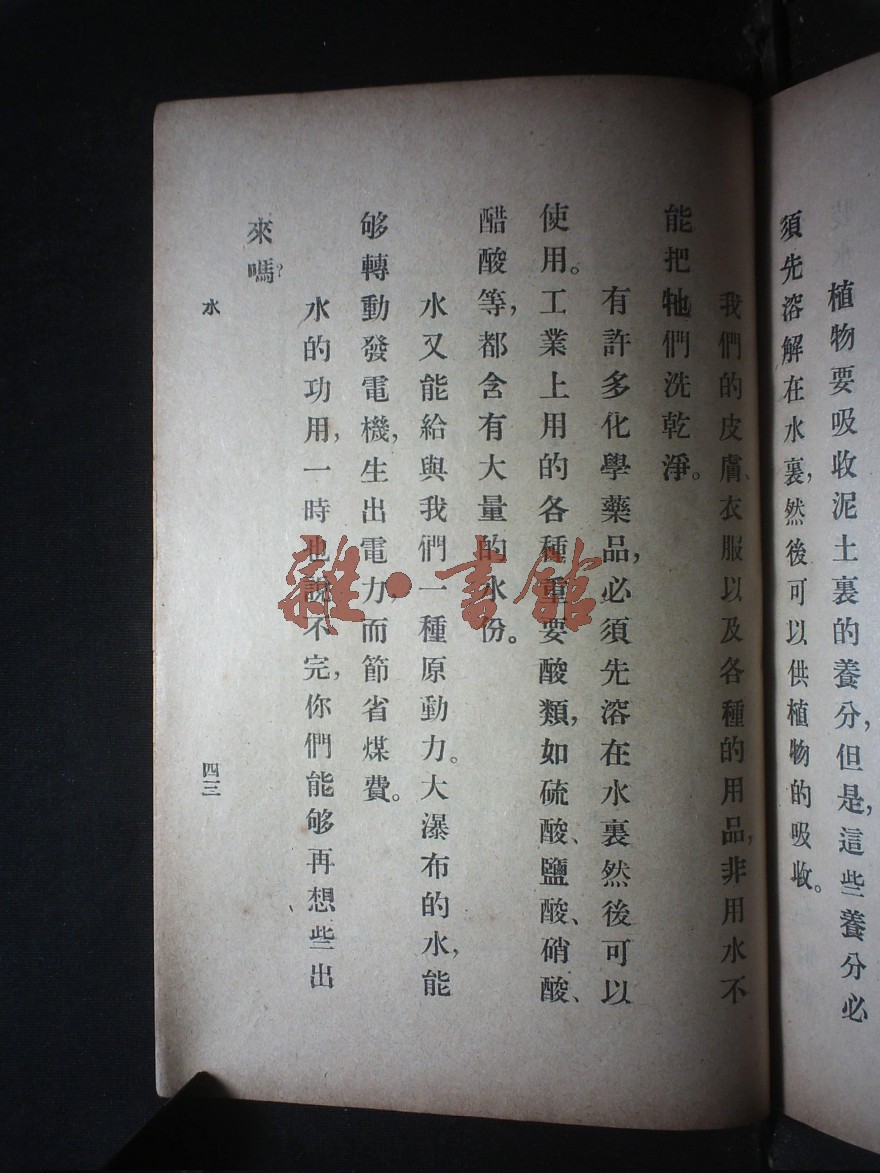 植物要吸收泥土裏的養分，但是，這些養分必
須先溶解在水裏，然後可以供植物的吸收。
我們的皮膚、衣服以及各種的用品，非用水不
能把牠們洗乾淨。
有許多化學藥品，必須先溶在水裏然後可以
使用。工業上用的各種重要酸類，如硫酸、鹽酸、硝酸、
醋酸等，都含有大量的水份。
水又能給與我們一種原動力。大瀑布的水，能
够轉動發電機，生出電力，而節省煤費。
水的功用，一時也說不完，你們能够再想些出
來嗎？
水
四三
雜·書館